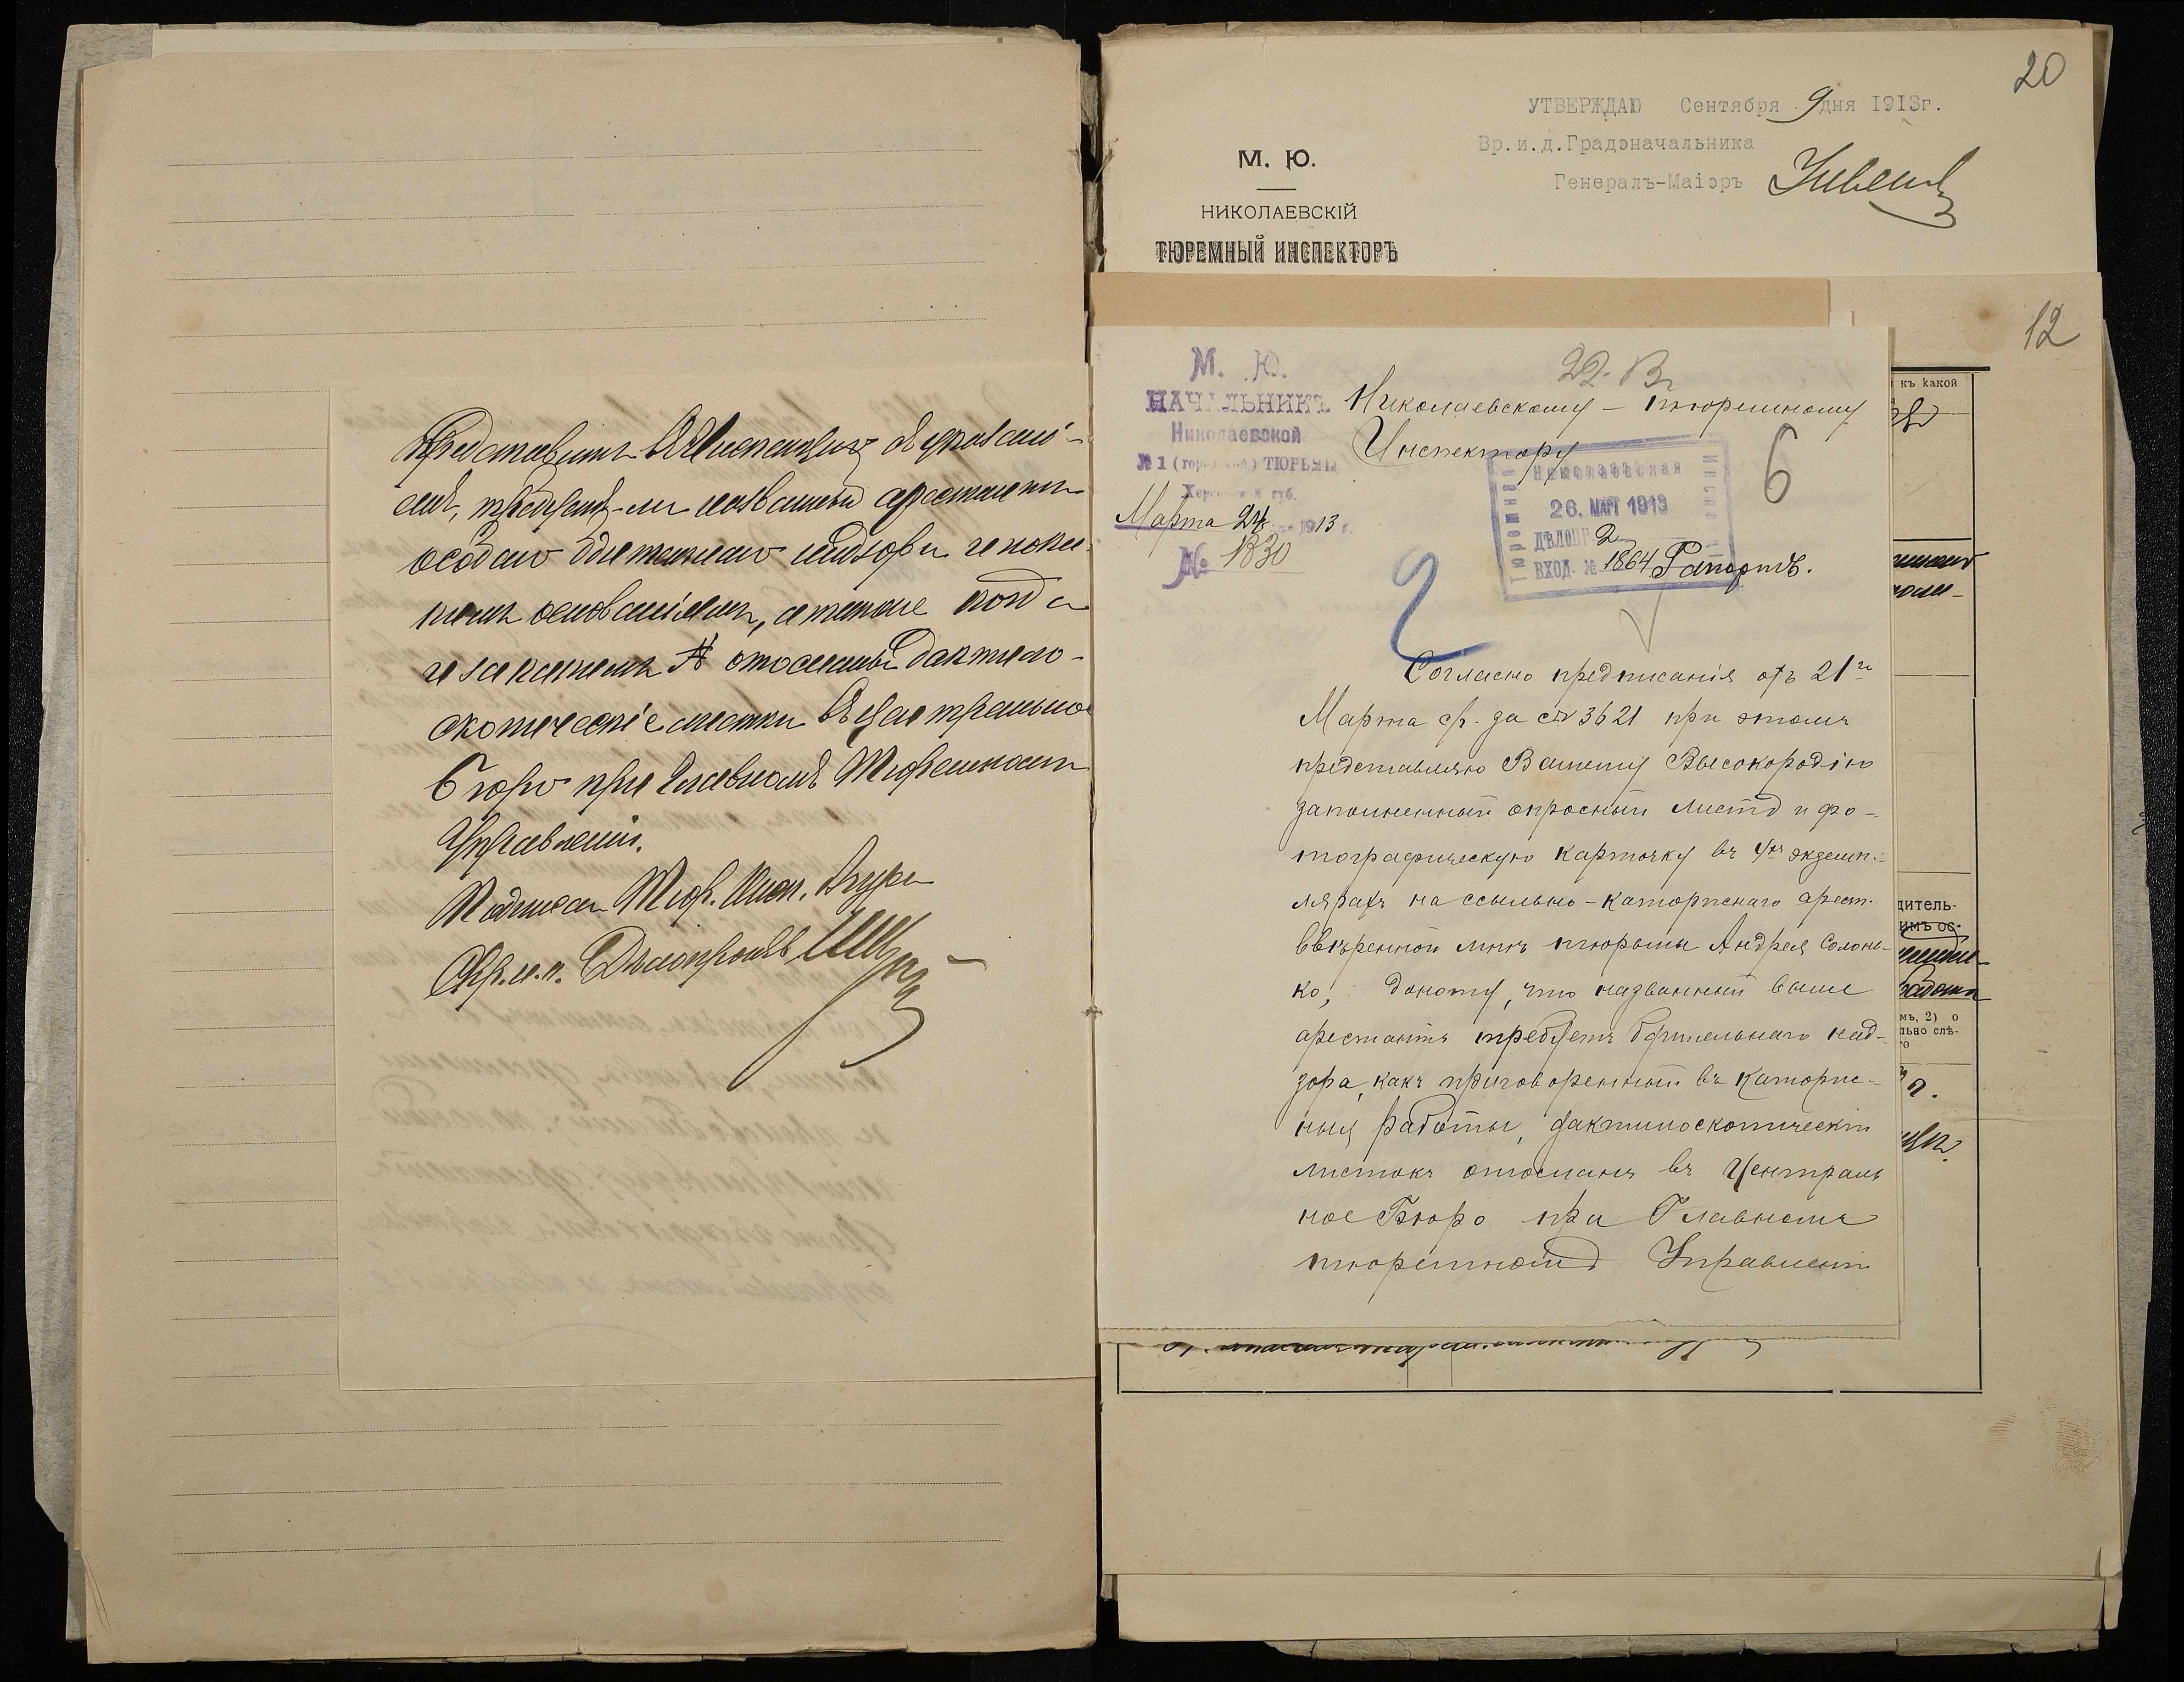 Представить въ Инспекцію съ указані-
емъ, требуетъ-ли названный арестантъ
особаго бдительнаго надзора и по ка-
кимъ основаніямъ, а также когда
и за какимъ № отосланы дактило-
скопическіе листки въ Центральное
Бюро при Главномъ Тюремномъ
Управленіи.
Подписалъ Тюр. Инсп.
Скр. и. п. Дѣлопроизв.
20
УТВЕРЖДАЮ Сентября 9 дня 1913г.
Вр.и.д.Градоначальника
Генералъ-Маіоръ
М. Ю.
НИКОЛАЕВСКІЙ
ТЮРЕМНЫЙ ИНСПЕКТОРЪ
12
къ какой
М. Ю.
НАЧАЛЬНИКЪ
Николаевской
№ 1 (городской) ТЮРЬМЫ
Херсонской губ.
Марта 24 1913 г.
№ 1830
Николаевскому – тюремному
Инспектору
6
Николаевская
Тюремная
Инспекція
26. МАРТ 1913
ДѢЛОПР. 2
ВХОД. № 1864
Рапортъ.
2
Согласно предписанія отъ 21го
Марта с/г. за № 3621 при этомъ
представляю Вашему Высокородію
заполненный опросный листъ и фо-
тографическую карточку въ экземп-
лярахъ на ссыльно-каторжнаго арест.
ввѣренной мнѣ тюрьмы Андрея Солонь-
ко, доношу, что названный выше
арестантъ требуетъ бдительнаго над-
зора, какъ приговоренный въ каторж-
ныя работы, дактилоскопическій
листокъ отосланъ въ Централь
ное Бюро при Главномъ
тюремномъ Управленіи
дитель-
имъ ос-
мъ, 2) о
льно слѣ-
го